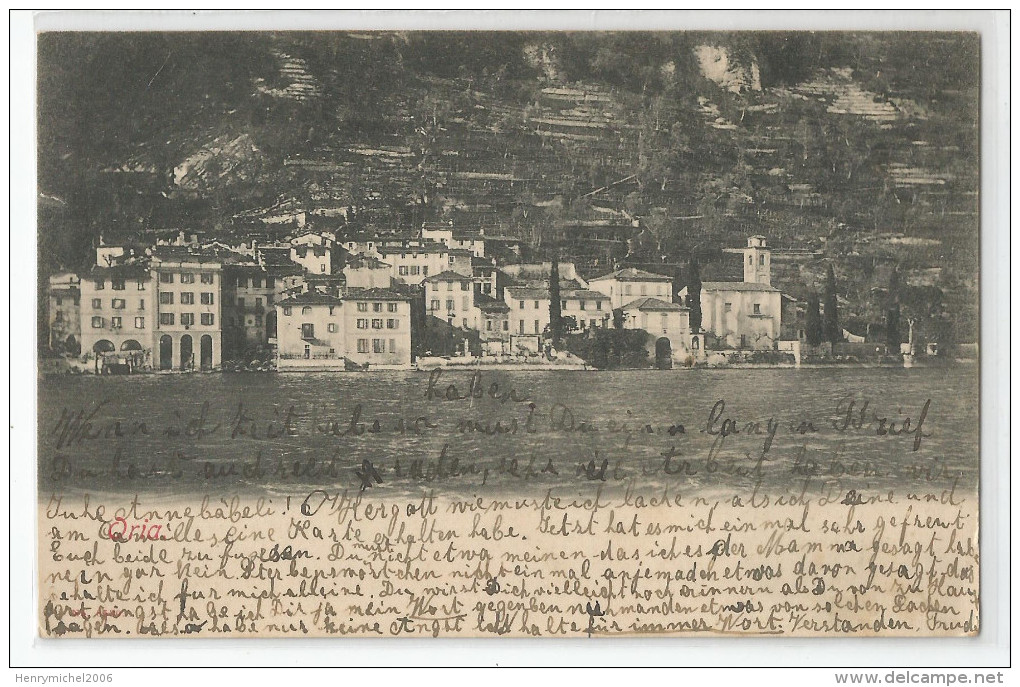 haben.
Wenn ich Zeit habe so must Du einen langen Brief
Du hast auch recht geraden, sehr viel Arbeit haben wir
Juhe Annebäbeli! O Hergott wie musste ich lachen, als ich Deine und
am Camille seine Karte erhalten habe. Jetzt hat es mich einmal sehr gefreut
Oria.
Euch beide zu Du must nicht etwa meinen das ich es der Mamma gesagt habe
nein gar kein Sterbenswörtchen nicht einmal an jemach etwas davon gesagt, das
behalte ich für mich alleine. Du wirst Dich vielleicht noch erinnern als Du von zu
fort gingst habe ich Dir ja mein Wort gegeben niemanden etwas von solchen Sachen
sagen. Also habe nur keine Angst ich halte für immer Wort. Verstanden. Trudi
Henrymichel2006
www.delcampe.net